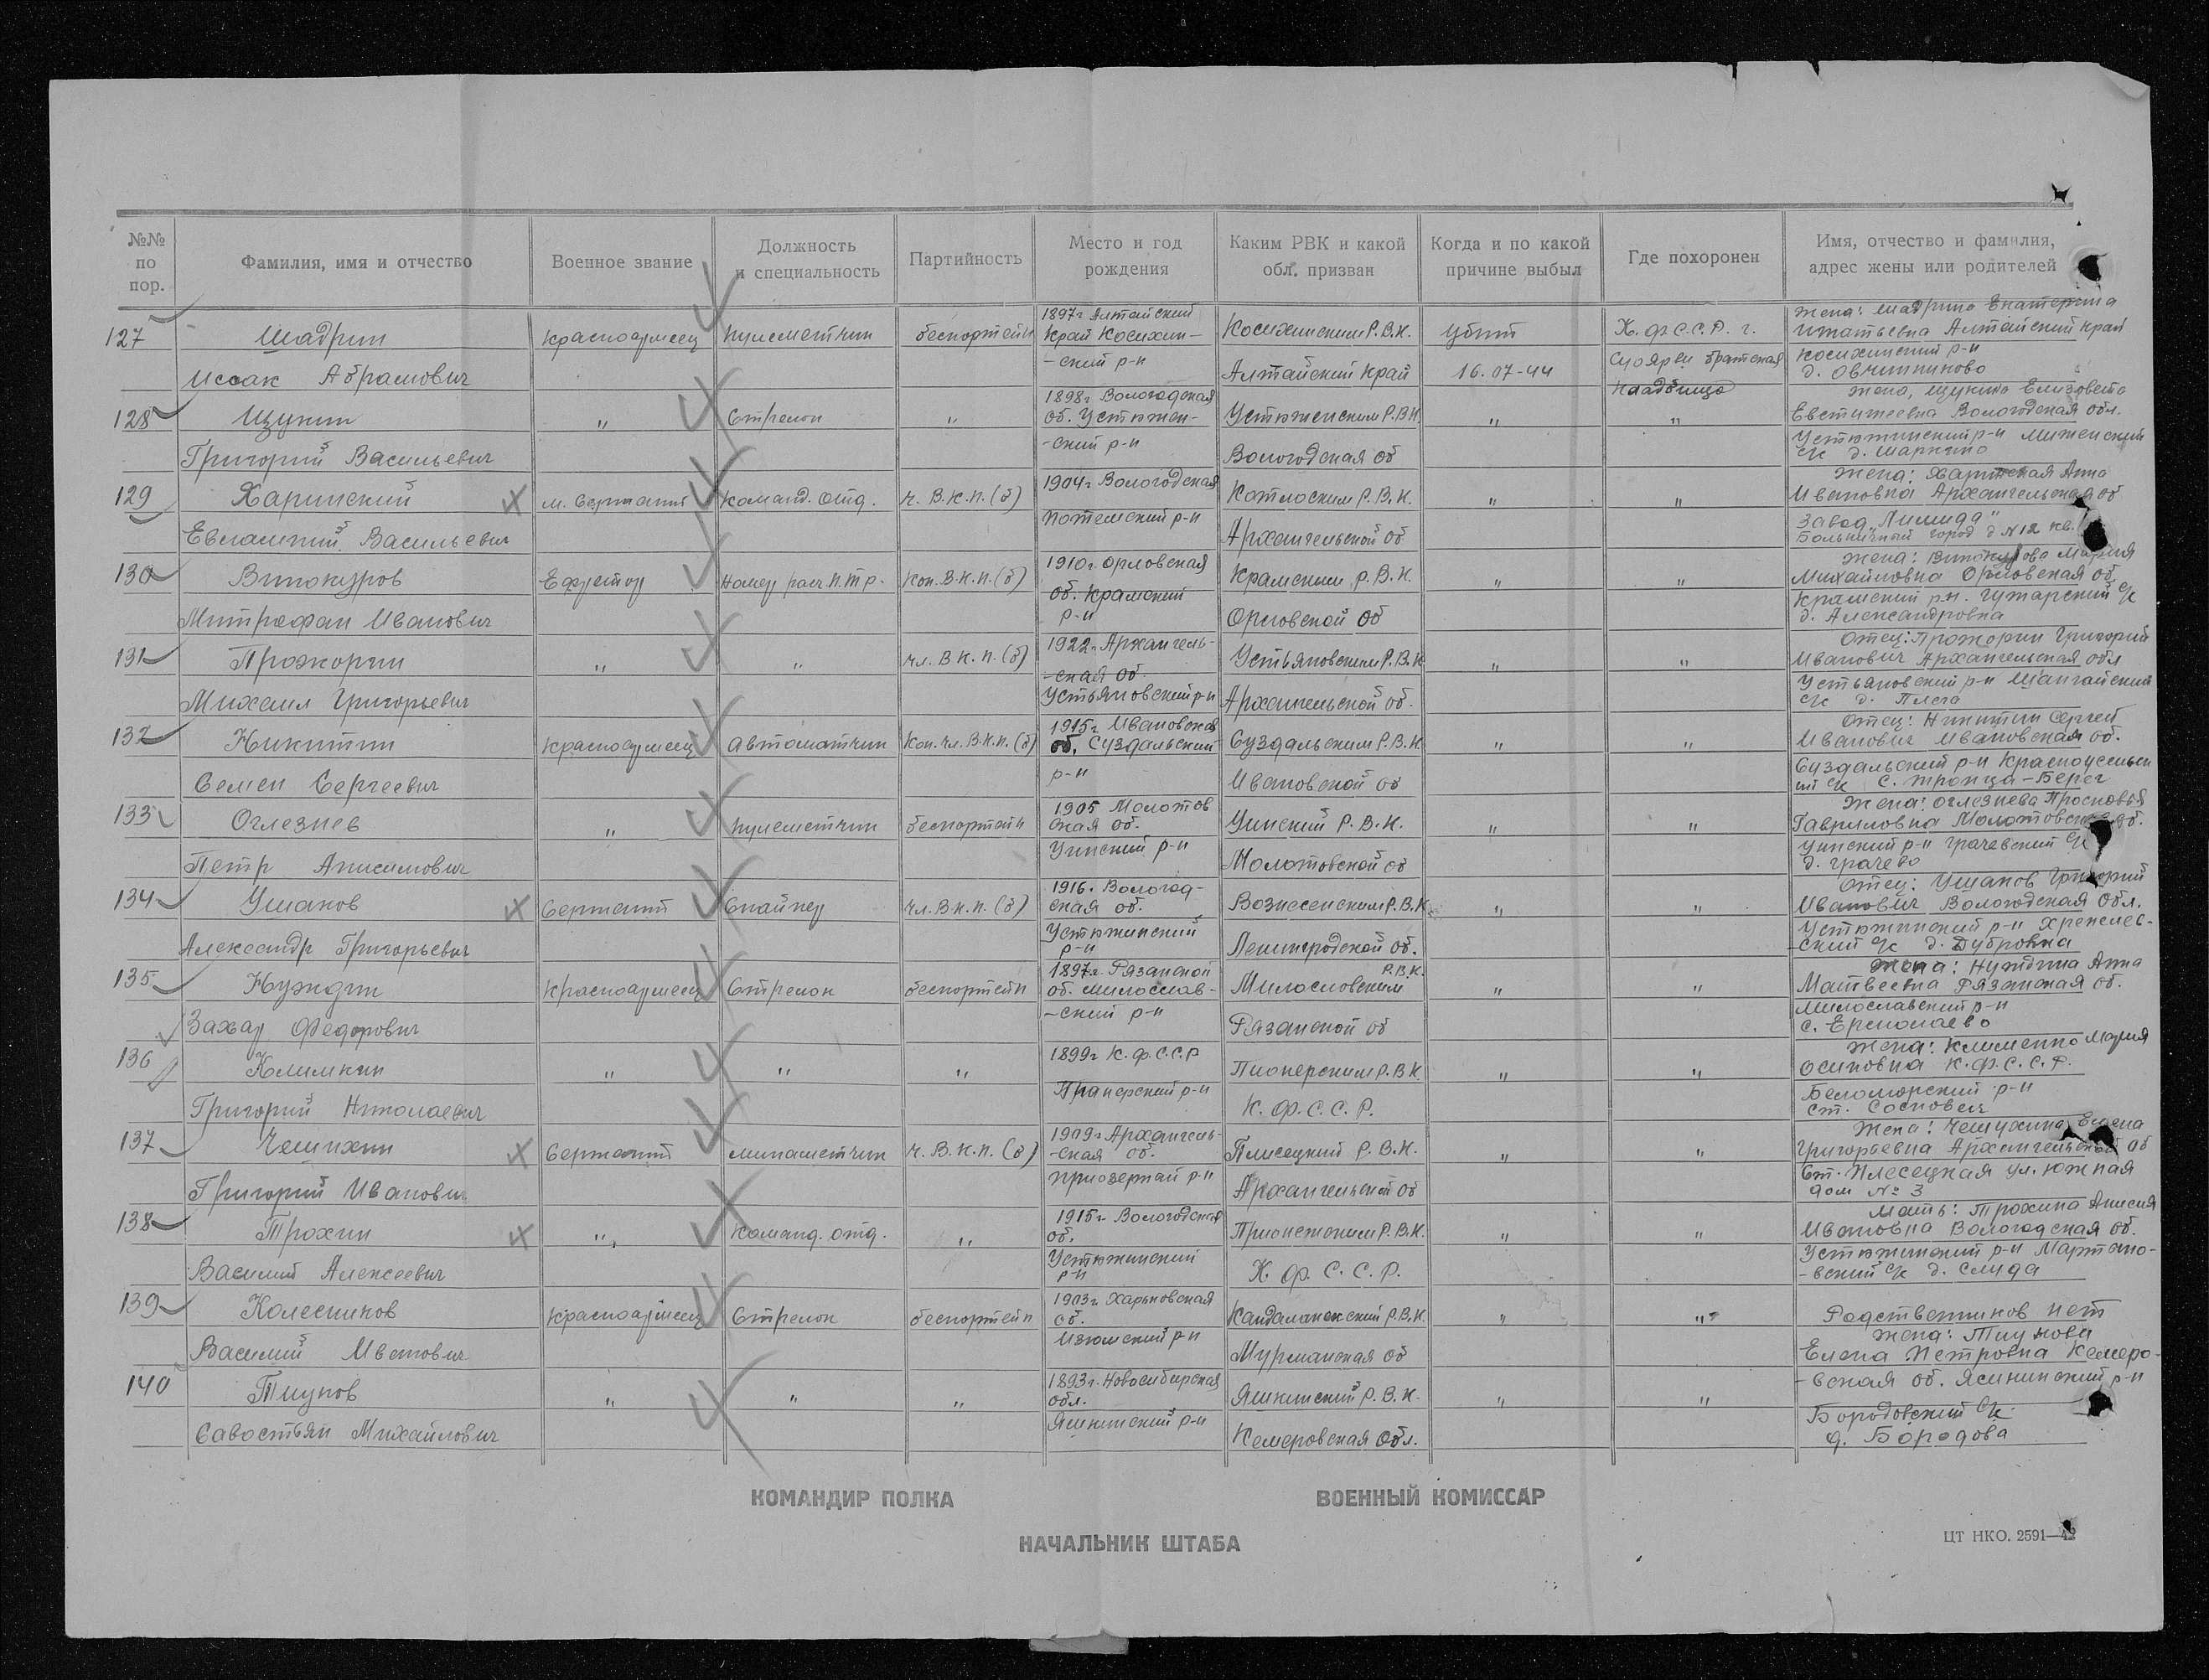 №№ по пор.
Фамилия, имя и отчество
Военное звание
Должность и специальность
Партийность
Место и год рождения
Каким РВК и какой обл. призван
Когда и по какой причине выбыл
Где похоронен
Имя, отчество и фамилия, адрес жены или родителей
127
Шадрин
Исаак Абрамович
Красноармеец
пулеметчик
беспартейн
1897г Алтайский
Край Косихин-
-ский р-н
Косихинским Р.В.К.
Алтайский край
Убит
16.07-44
К.ф.С.С.Р. г.
Суоярви братская
кладбище
Жена: Шадрина Екатерина
Игнатьевна Алтайский край
Косихинский р-н
д. Овчинниково
128
Щукин
Григорий Васильевич
"
Стрелок
"
1898г Вологодская
об. Устюжен-
-ский р-н
Устюженским Р.В.К.
Вологодская об
"
"
Жена, Щукина Елизовета
Евстигнеевна Вологодская обл.
Устюжинский р-н
с/с д. Маркино
129
Харинский
Евлампий Васильевич
м. Сержант
Команд. отд.
ч. В.К.п.(б)
1904г Вологодская
р-н
Котлоским Р.В.К.
Архангельской об
"
"
Жена: Харинская Анна
Ивановна Архангельская об
Завод
Больничный город д N12 кв.
130
Винокуров
Митрофан Иванович
Ефрейтор
Номер расч п.т р.
Кан. В.К.п.(б)
1910г. Орловская
об. Крамский
р-н
Крамским Р.В.К.
Орловской об
"
"
Жена: Винокурова Мария
Михайловна Орловская об
Крамский р-н. с/с
д. Александровка
131
Прожорин
Михаил Григорьевич
"
"
чл. В К. п. (б)
1922г. Архангель-
-ская об.
Устьяновский р-н
Устьяновским Р.В.К
Архангельской об.
"
"
Отец: Прожорин Григорий
Иванович Архангельская обл
Устьяновский р-н
с/с д.
132
Никитин
Семен Сергеевич
Красноармеец
Автоматчик
Кан. чл. В.К.п. (б)
1915г. Ивановская
об. Суздальский
р-н
Суздальским Р.В.К
Ивановской об
"
"
Отец: Никитин Сергей
Иванович Ивановская об.
Суздальский р-н
с/с с. Троица-Берег
133
Оглезнев
Петр Анисимович
"
пулеметчик
беспартейн
1905 Молотов
ская об.
Уинский р-н
Уинский Р. В. К.
Молотовской об
"
"
Жена: Оглезнева Просковья
Гавриловна Молотовская об.
Уинский р-н Грачевский с/с
д. Грачево
134
Ушаков
Александр Григорьевич
Сержант
Снайпер
чл. В К. п. (б)
1916г. Вологод-
ская об.
Устюжинский
р-н
Вознесенским Р.В.К.
Ленинградской об.
"
"
Отец: Ушаков Григорий
Иванович Вологодская обл.
Устюжинский р-н
-ский с/с д. Дубровка
135
Нуждин
Захар Федорович
Красноармеец
Стрелок
беспартейн
1897г. Рязанской
об. Милослав-
-ский р-н
Милословским Р.В.К.
Рязанской об
"
"
Жена: Нуждина Анна
Матвеевна Рязанская об.
Милославский р-н
с. Ермолаево
136
Климкин
Григорий Николаевич
"
"
"
1899г К.ф.С.С.Р
р-н
Пионерским Р.В.К
К. ф. С. С. Р.
"
"
Жена: Клименко Мария
Осиповна К.ф.С.С.Р.
Беломорский р-н
ст. Сосновец
137
Чешихин
Григорий Иванович
Сержант
минометчик
ч. В.К.п. (б)
1909г Архангель-
-ская об.
Приозерный р-н
Плисецкий Р.В.К.
Архангельской об
"
"
Жена: Елена
Григорьевна Архангельской об
Ст. Плесецкая ул. Южная
дом № 3
138
Трохин
Василий Алексеевич
"
Команд. отд.
"
1915г. Вологодская
об.
Устюжинский
р-н
Прионежским Р.В.К.
К. ф. С. С. Р.
"
"
Мать: Трохина Анисия
Ивановна Вологодская об.
Устюжинский р-н Мартыно-
-вский с/с д. Слуда
139
Колесников
Василий Иванович
Красноармеец
Стрелок
беспартейн
1903г. Харьковская
об.
Изюмский р-н
Кандалакский Р.В.К.
Мурманская об
"
"
Родственников нет
140
Тиунов
Савостьян Михайлович
"
"
"
1893г. Новосибирская
обл.
Яшкинский р-н
Яшкинский Р.В.К.
Кемеровская обл.
"
"
Жена: Тиунова
Елена Петровна Кемеро-
-вская об. р-н
Бородовский с/с
д. Бородова
КОМАНДИР ПОЛКА
ВОЕННЫЙ КОМИССАР
НАЧАЛЬНИК ШТАБА
ЦТ НКО. 2591—42